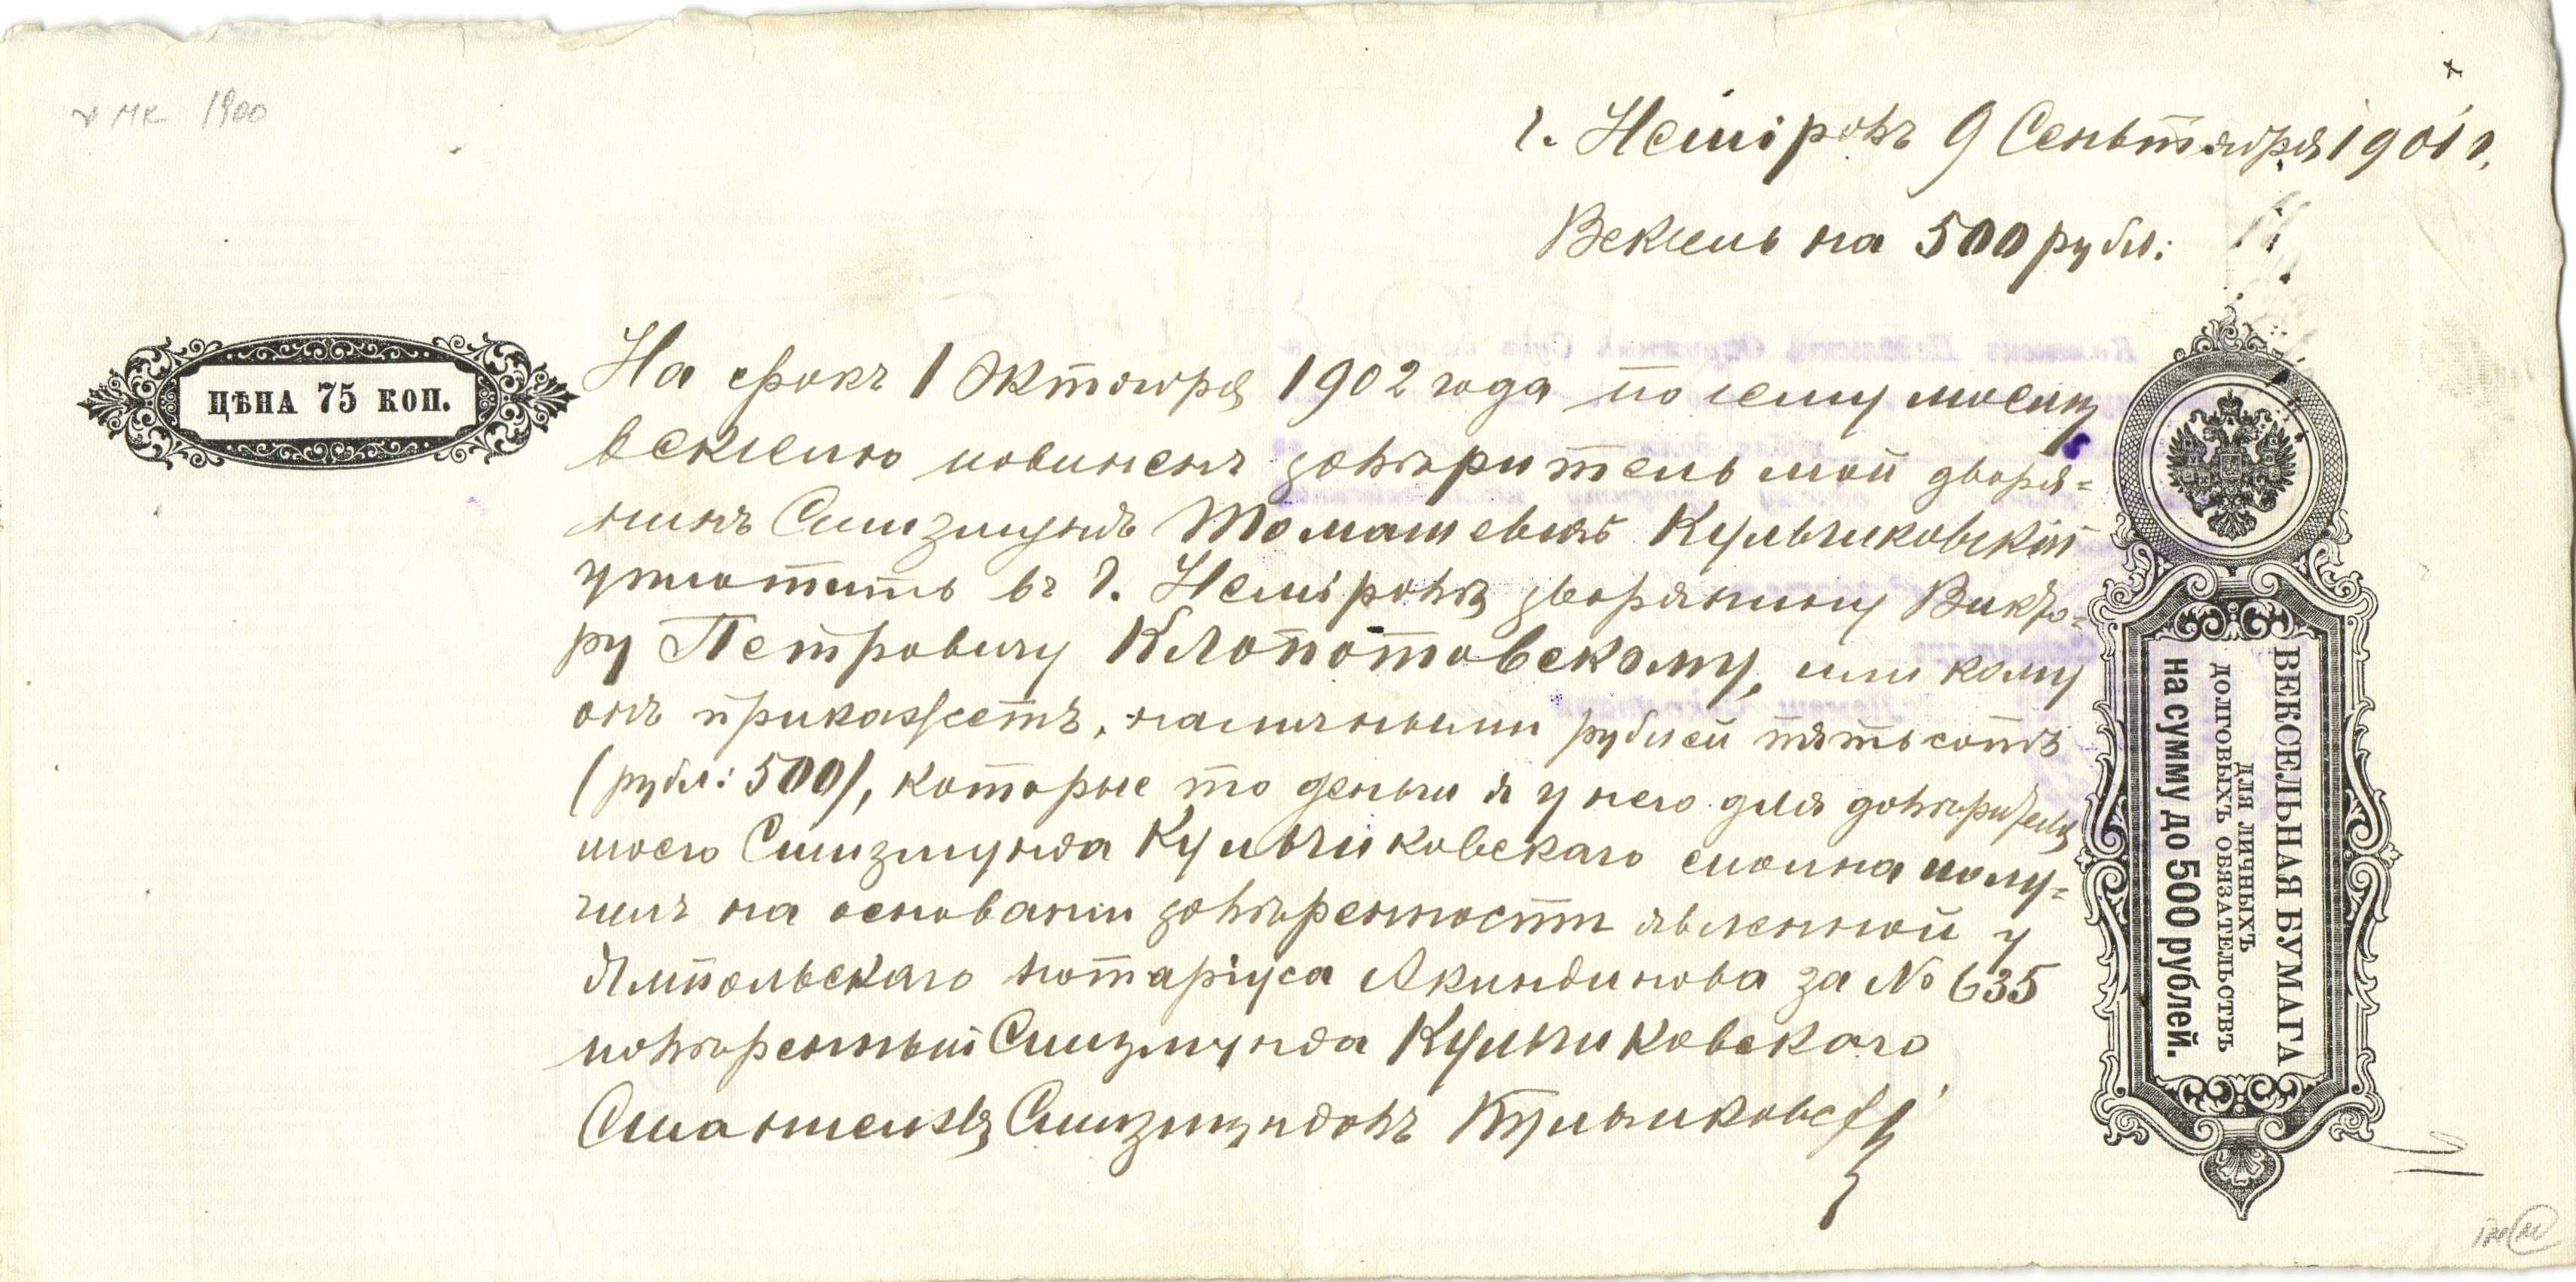 г. Неміровъ 9 Сентября 1901 г.
Вексель на 500 рубл:
ЦѢНА 75 КОП.
На срокъ 1 Октября 1902 года по сему моему
векселю повиненъ довѣритель мой дворя=
нинъ Сигизмундъ Томашевъ Кульчиковскій
уплатить въ г. Неміровѣ дворянину Викто=
ру Петровичу Клопотовскому, или кому
онъ прикажетъ, наличными рублей пятьсотъ
(рубл: 500), которые то деньги я у него для довѣрителя
моего Сигизмунда Кульчиковскаго сполна полу=
чилъ на основаніи довѣренности явленной у
Ямпольскаго нотаріуса Акиндинова за № 635
повѣренный Сигизмунда Кульчиковскаго
Сигизмундовъ Кульчиковскій
ВЕКСЕЛЬНАЯ БУМАГА
ДЛЯ ЛИЧНЫХЪ
ДОЛГОВЫХЪ ОБЯЗАТЕЛЬСТВЪ
на сумму до 500 рублей.
МК 1900